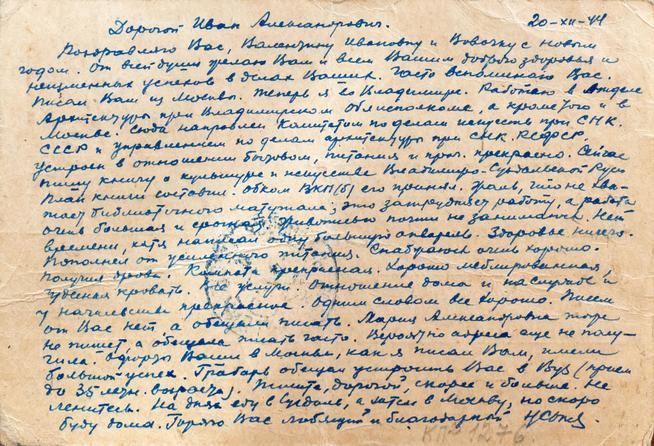 20-XII-44
Дорогой Иван Александрович.
Поздравляю Вас, Валентину Ивановну и Вовочку с новым
годом. От всей души желаю Вам и всем Вашим доброго здоровья и
неизменных успехов в делах Ваших. Часто вспоминаю Вас.
Писал Вам из Москвы. Теперь я во Владимире. Работаю в Отделе
Архитектуры при Владимирском Облисполкоме, а кроме того и в
Москве. Сюда направлен Комитетом по делам искусств при СНК.
СССР и управлением по делам архитектуры при СНК РСФСР.
Устроен в отношении бытовом, питания и проч. прекрасно. Сейчас
пишу книгу о культуре и искусстве Владимиро-Суздальской Руси
План книги составил, обком ВКП(б) его принял. Жаль, что не хва-
тает библиотечного материала; это затрудняет работу, а работа
очень большая и срочная. Живописью почти не занимаюсь. Нет
времени, хотя написал одну большую акварель. Здоровье ничего.
Пополнел от усиленного питания. Снабжают очень хорошо.
Получил дрова. Комната прекрасная. Хорошо меблированная,
чудесная кровать. Все услуги. Отношение дома и на службе и
у начальства прекрасное. Одним словом все хорошо. Писем
от Вас нет, а обещали писать. Мария Александровна тоже
не пишет, а обещала писать часто. Вероятно адреса еще не полу-
чила. Офорты Ваши в Москве, как я писал Вам, имели
большой успех. Грабарь обещал устроить Вас в Вуз (прием
до 35 летн. возраста). Пишите, дорогой, скорее и больше. Не
ленитесь. На днях еду в Суздаль, а затем в Москву, но скоро
буду дома. Горячо Вас любящий и благодарный
КП 1276